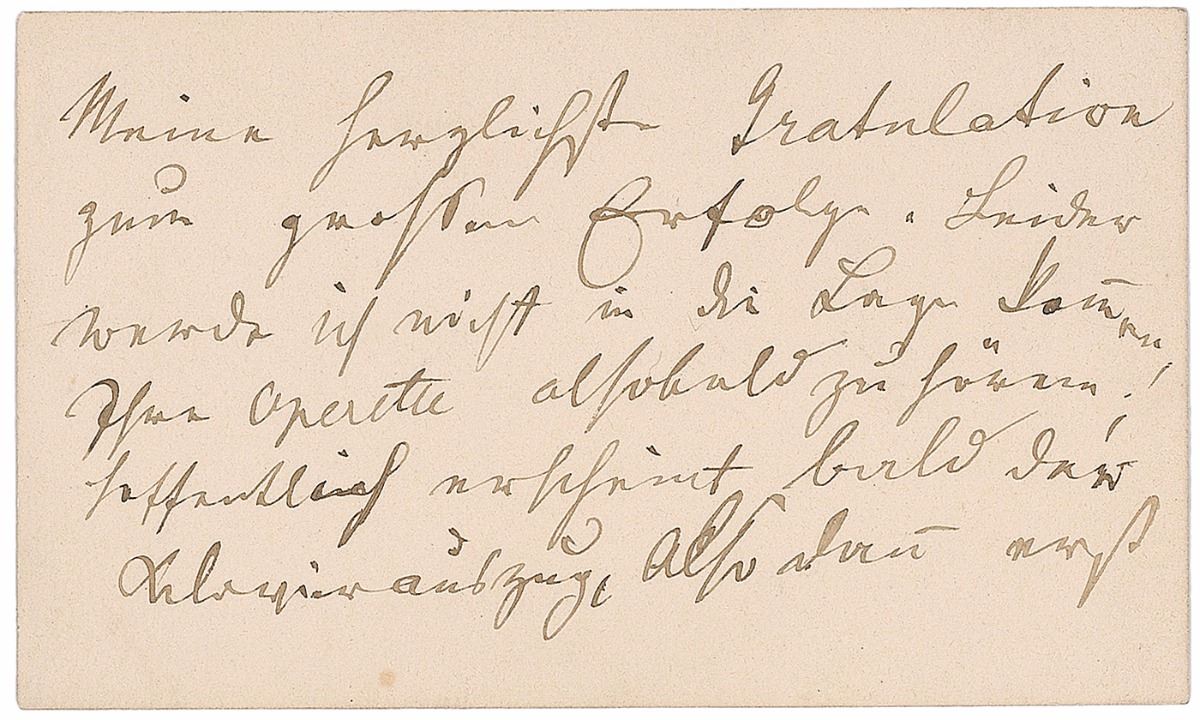 Meine herzlichste Gratulation
zum grossen Erfolge. Leider
werde ich nicht in die Lage kom̅en,
Ihre Operette alsobald zu hören;
hoffentlich erscheint bald der
Klavierauszug, also dan̅ erst